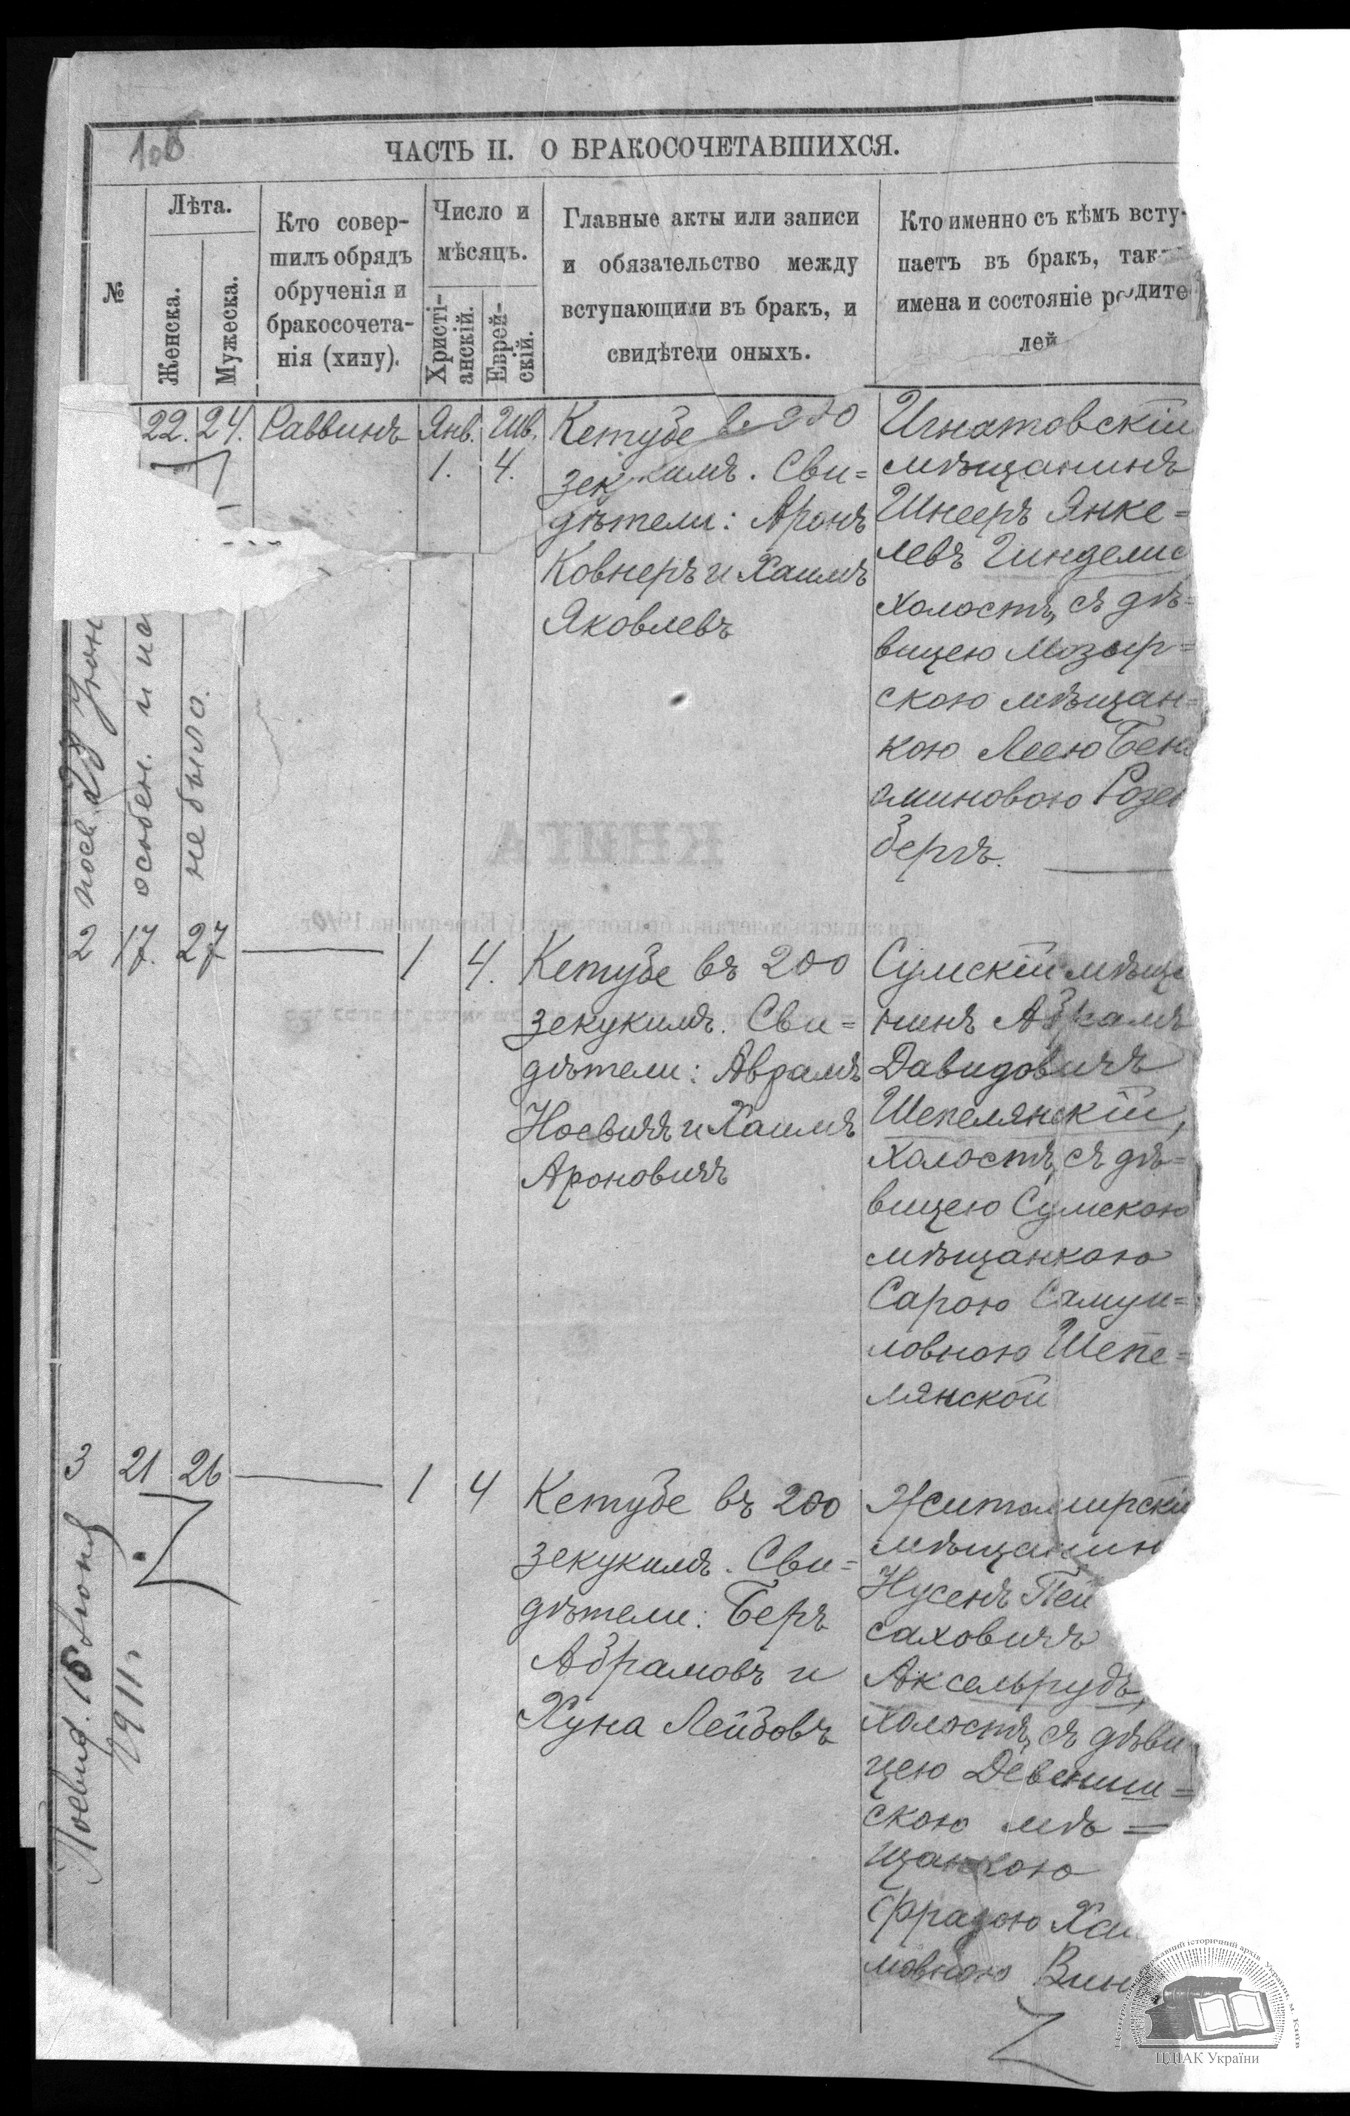 ЧАСТЬ II. О БРАКОСОЧЕТАВШИХСЯ.
№
Лѣта.
Женска.
Мужеска.
Кто совер-
шилъ обрядъ
обрученія и
бракосочета-
нія (хипу).
Число и
мѣсяцъ.
Христі-
анскій.
Еврей-
скій.
Главные акты или записи
и обязательство между
вступающими въ бракъ, и
свидѣтели оныхъ.
Кто именно съ кѣмъ всту-
паетъ въ бракъ, так
имена и состояніе родите
лей
22. 24. Раввинъ Янв. Шв.
1. 4.
Кетубе в. 200
зек кимъ. Сви=
дѣтели: Аронъ
Ковнеръ и Хаимъ
Яковлевъ
Игнатовскій
мѣщанинъ
Шнееръ Янке=
левъ Гинделис
холостъ, съ дѣ=
вицею Мозыр=
скою мѣщан=
кою Леею Бені
аминовою Розен
бергъ.
особен. и
не было.
2 17. 27 1 4.
Кетубе въ 200
зекукимъ. Сви=
дѣтели: Аврамъ
Носвичъ и Хаимъ
Ароновичъ
Сумскій мѣща
нинъ Абрамъ
Давидовичъ
Шепелянскій,
холостъ, съ дѣ=
вицею Сумскою
мѣщанкою
Сарою Самуи=
ловною Шепе=
лянской
3 21 26 1 4
Кетубе въ 200
зекукимъ. Сви=
дѣтели: Беръ
Абрамовъ и
Хуна Лейбовъ
Житомирскій
мѣщанин
Нусенъ Пей
саховичъ
Аксельрудъ,
холостъ, съ дѣви
цею Девениш=
скою мѣ=
щанкою
Фрадою Хаи
мовною Вин
1911 г.
КНИГА
ЦДІАК України